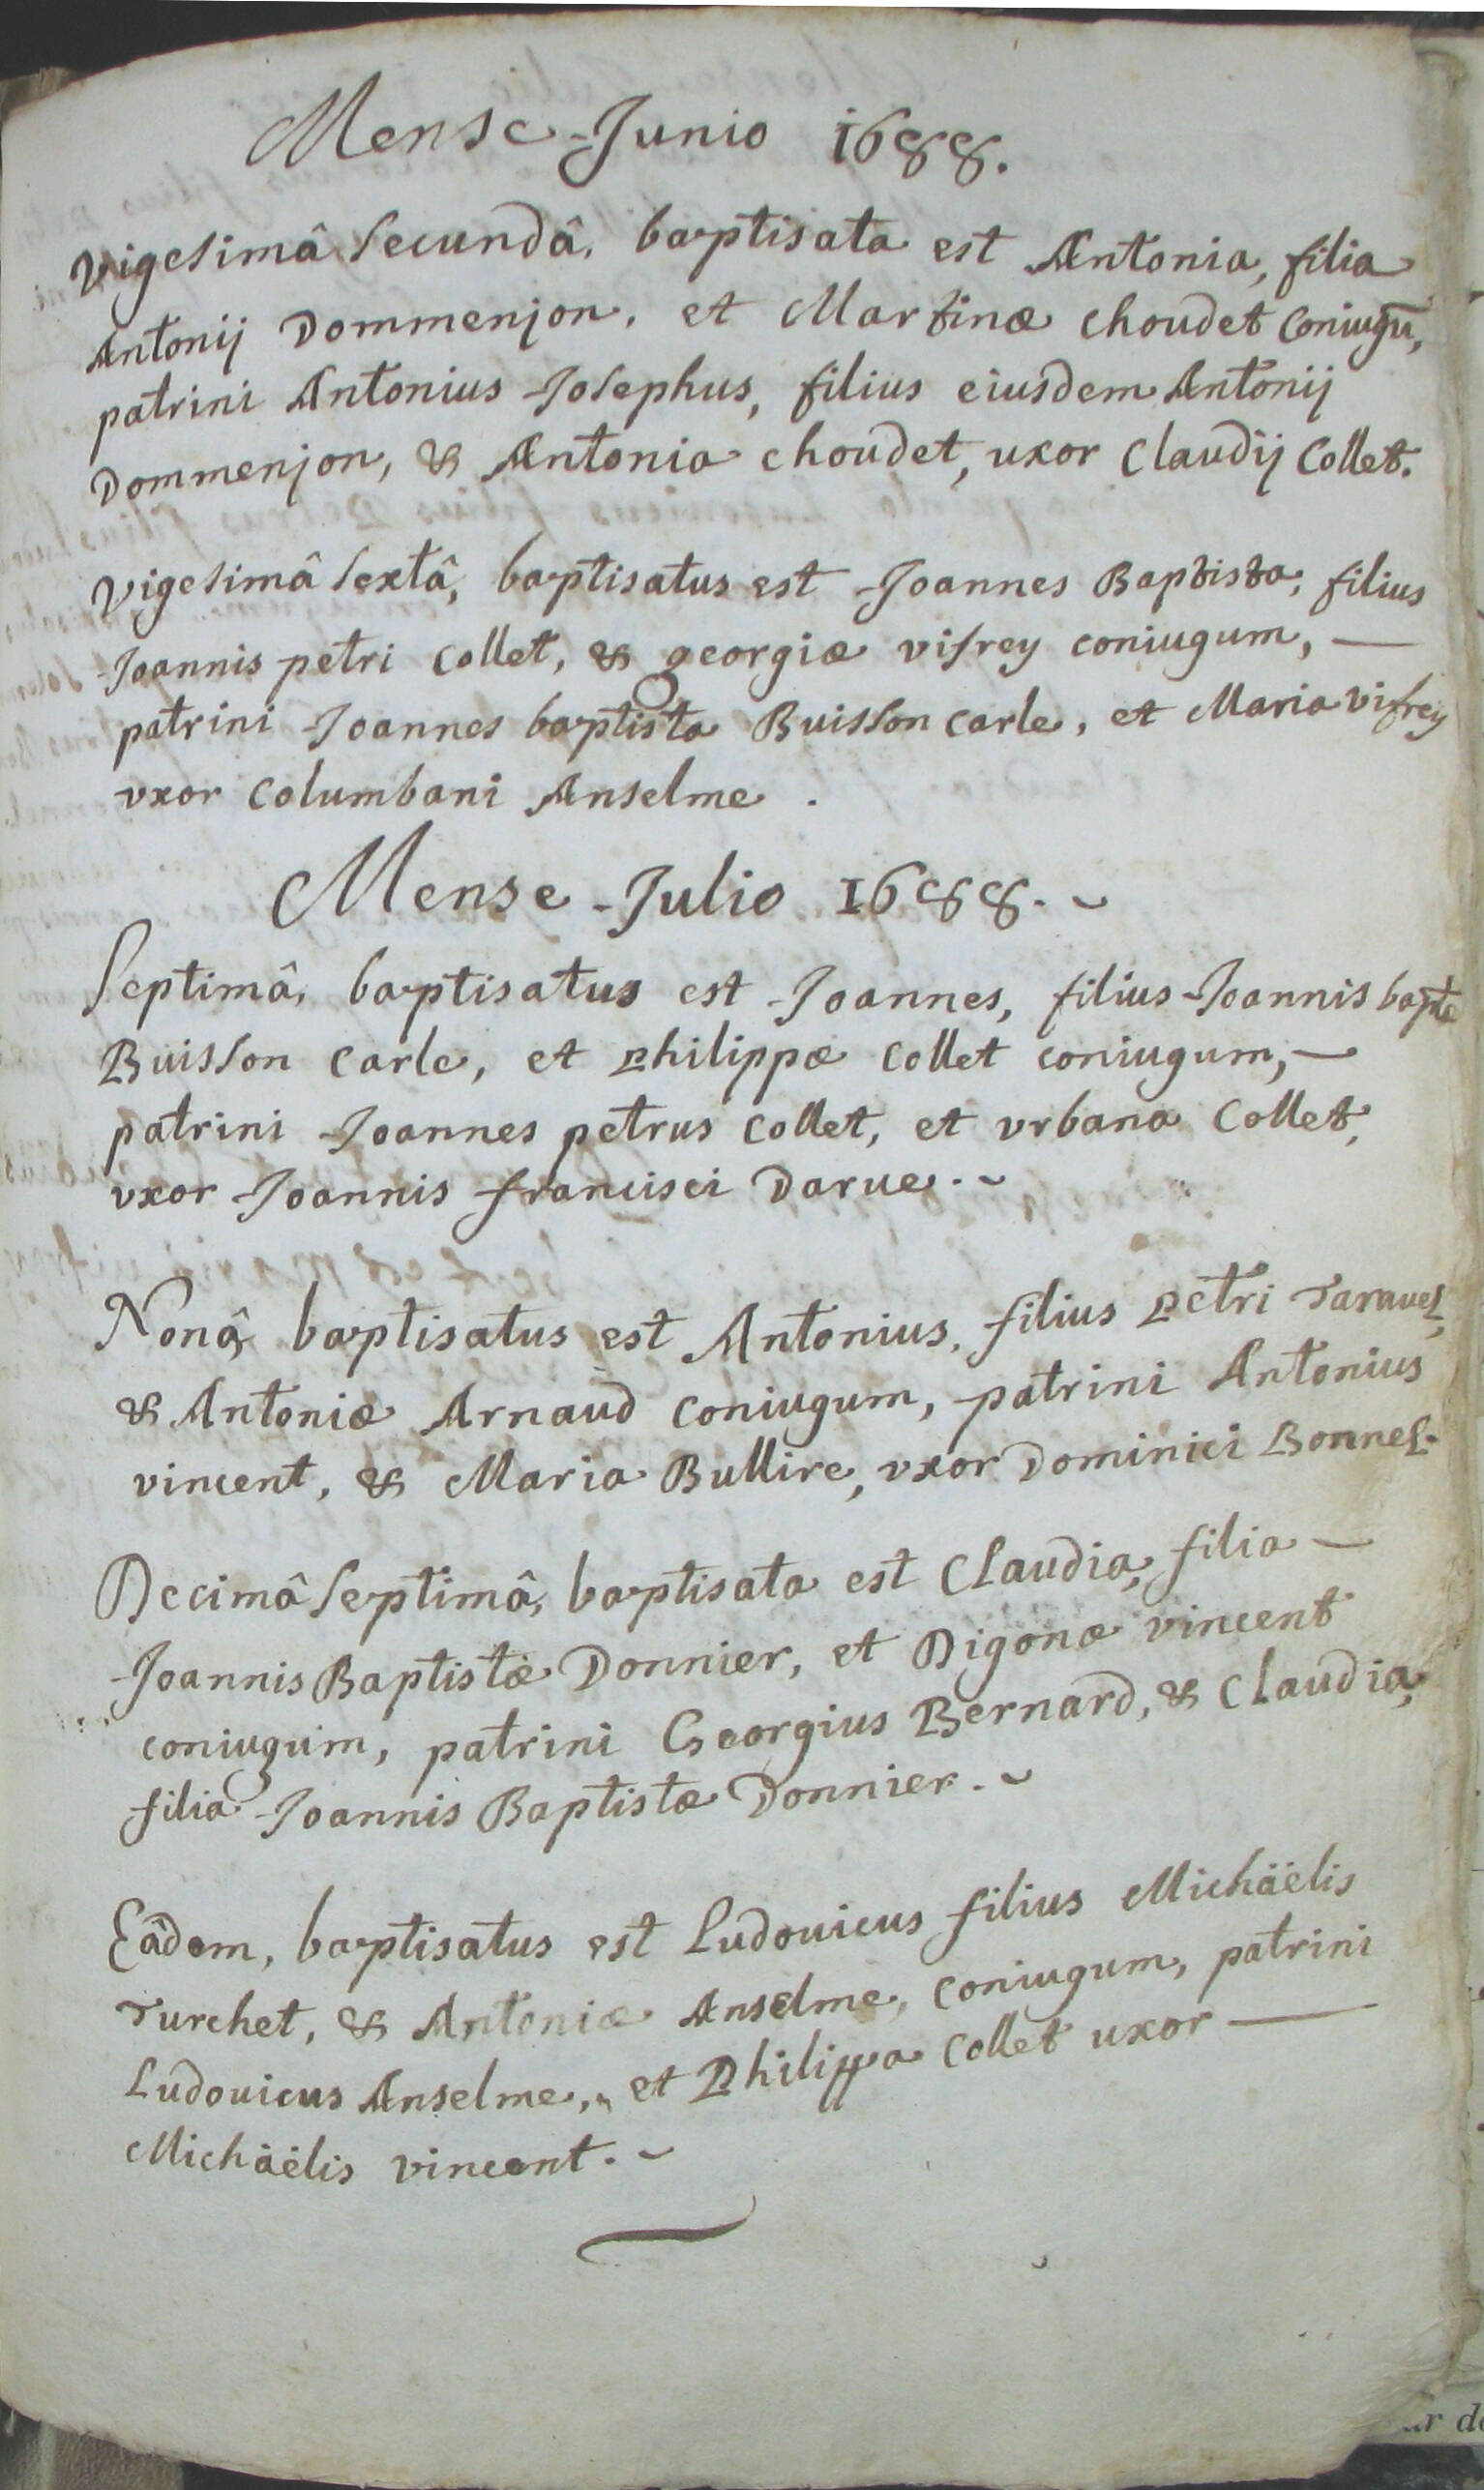 Mense Junio 1688.
Vigesimâ secundâ, baptisata est Antonia, filia
Antonij Dommenjon, et Martinæ choudet coniugū,
patrini Antonius Josephus, filius eiusdem Antonij
Dommenjon, & Antonia choudet, uxor Claudij Collet.
Vigesimâ sextâ, baptisatus est Joannes Baptista, filius
Joannis petri Collet, & georgiæ vifrey coniugum, —
patrini Joannes baptista Buisson carle, et Maria vifrey
vxor Columbani Anselme.
Mense Julio 1688.
Septimâ, baptisatus est Joannes, filius Joannis bapte
Buisson carle, et philippæ Collet coniugum, —
patrini Joannes petrus Collet, et vrbana Collet,
vxor Joannis francisci Darue.
Nonâ, baptisatus est Antonius, filius petri Tarauel,
& Antoniæ Arnaud coniugum, patrini Antonius
vincent, & Maria Bullire, vxor Dominici Bonnel.
Decimâ septimâ, baptisata est Claudia, filia —
Joannis Baptistæ Donnier, et Digonæ vincent
coniugum, patrini Georgius Bernard, & Claudia,
filia Joannis Baptistæ Donnier.
Eâdem, baptisatus est Ludouicus filius Michäelis
Turchet, & Antoniæ Anselme, coniugum, patrini
Ludouicus Anselme, et Philippa Collet uxor —
Michäelis vincent.